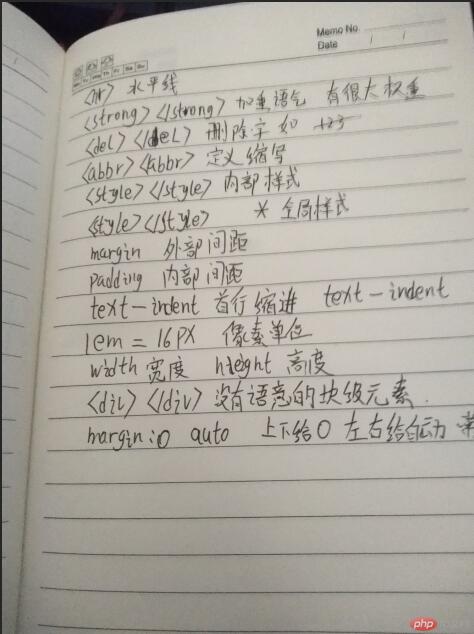 Memo No.
Date / /
Mo Tu We Th Fr Sa Su
<hr> 水平线
<strong></strong> 加重语气 有很大权重
<del></del> 删除字 如 123
<abbr><abbr> 定义缩写
<style></style> 内部样式
<style></style> * 全局样式
margin 外部间距
padding 内部间距
text-indent 首行缩进 text-indent
1em = 16px 像素单位
width 宽度 height 高度
<div></div> 没有语意的块级元素.
margin:0 auto 上下给0 左右给自动
php